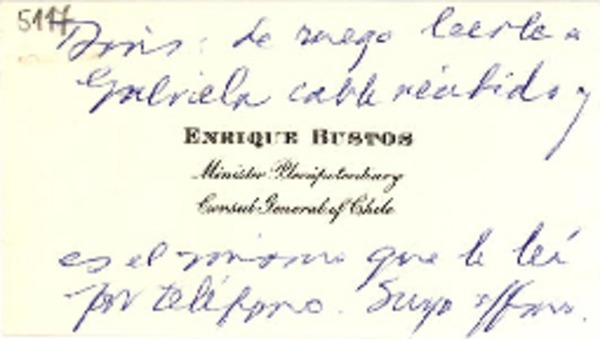 5117
Doris: le ruego leerle a
Gabriela cable recibido y
ENRIQUE BUSTOS
Minister Plenipotentiary
Consul General of Chile
es el mismo que le leí
por teléfono. Suyo affmo.